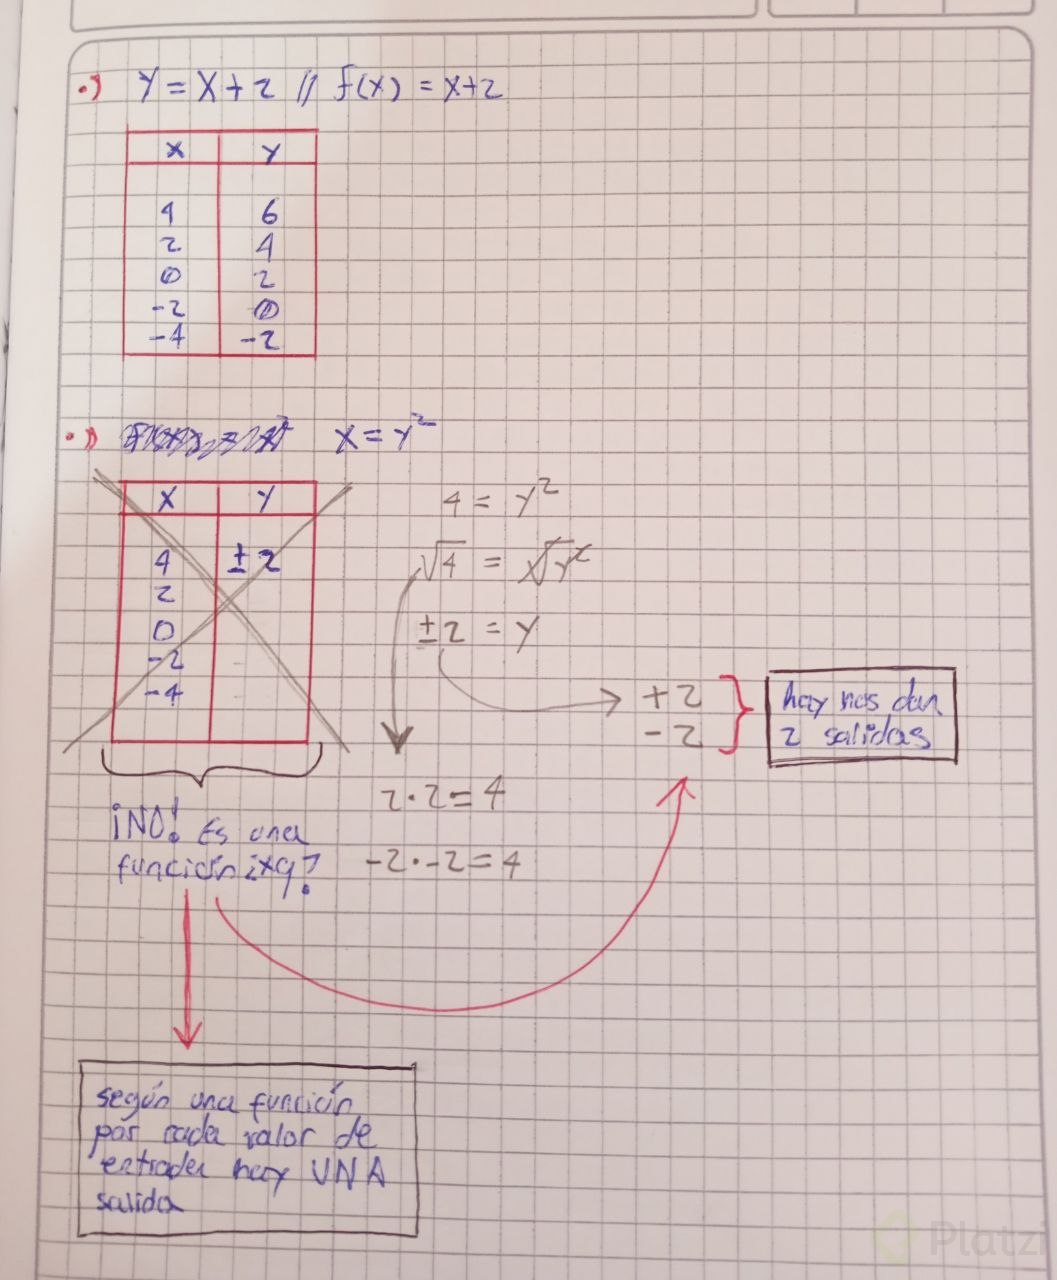 •) Y = X + 2 // f(x) = x+2
X Y
4 6
2 4
0 2
-2 0
-4 -2
•) X = Y²
X Y
4 ± 2
2
0
-2
-4
4 = Y²
√4 = √Y²
±2 = Y
+2
-2
hay nos dan
2 salidas
2·2=4
-2·-2=4
¡NO! Es una
función ¿xq?
según una función
por cada valor de
entrada hay UNA
salida
Platzi